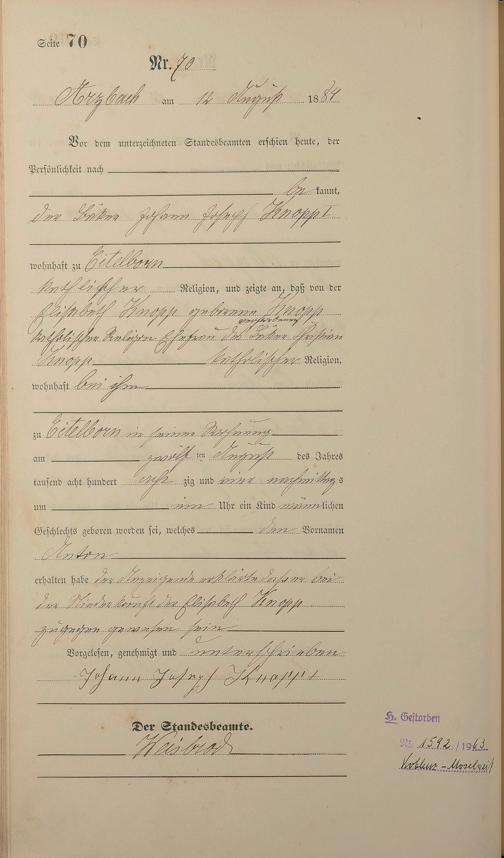 Seite 70
Nr. 70
Arzbach am 12 August 1884
Vor dem unterzeichneten Standesbeamten erschien heute, der
Persönlichkeit nach
be kannt,
der Johann Joseph Knopp I
wohnhaft zu Eitelborn
katholischer Religion, und zeigte an, daß von der
Elisabeth Knopp geborene Knopp
katholischer Religion Ehefrau des Christian
Knopp katholischer Religion,
wohnhaft bei ihm
zu Eitelborn in seiner Wohnung
am zwölf ten August des Jahres
tausend acht hundert acht zig und vier nachmittags
um Uhr ein Kind männlichen
Geschlechts geboren worden sei, welches den Vornamen
Anton
erhalten habe der Anzeigende erklärte dass er bei
der Niederkunft der Elisabeth Knopp
zugegen gewesen sein
Vorgelesen, genehmigt und unterschrieben
Johann Joseph Knopp I
Der Standesbeamte.
Weisbrod
H. Gestorben
Nr. 1592/1963
Koblenz-Moselweiß